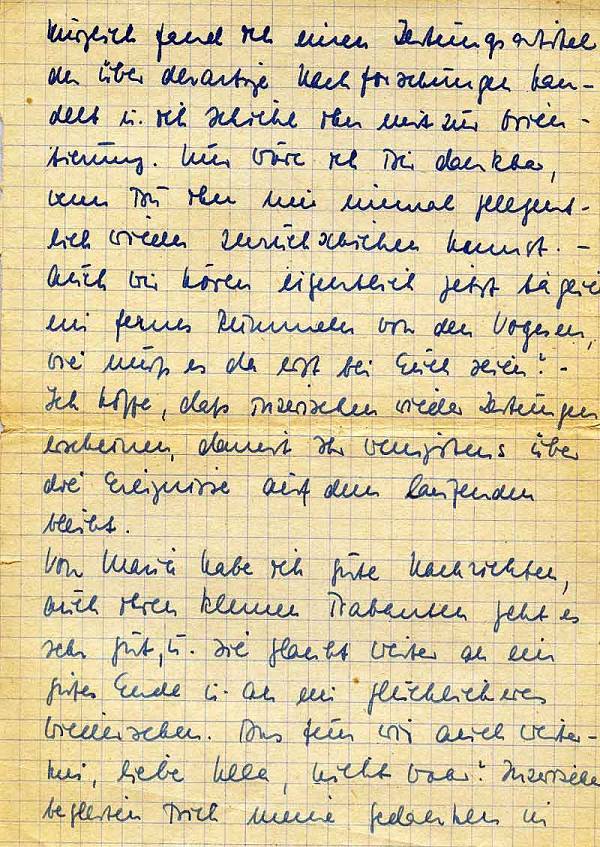 Kürzlich fand ich einen Zeitungsartikel
der über derartige Nachforschungen han-
delt u. ich schicke ihn mit zur Orien-
tierung. Nur wäre ich Dir dankbar,
wenn Du ihn mir einmal gelegent-
lich wieder zurückschicken kannst. –
Auch wir hören eigentlich jetzt täglich
ein fernes Rummeln von den Vogesen,
wie muß es da erst bei Euch sein? –
Ich hoffe, daß inzwischen wieder Zeitungen
erscheinen, damit Ihr wenigstens über
die Ereignisse auf dem laufenden
bleibt.
Von Mausi habe ich gute Nachrichten,
auch ihren kleinen Trabanten geht es
sehr gut, u. sie glaubt weiter an ein
gutes Ende u. an ein glücklicheres
Wiedersehen. Das tun wir auch weiter-
hin, liebe Hella, nicht wahr? Inzwischen
begleiten Dich meine Gedanken in